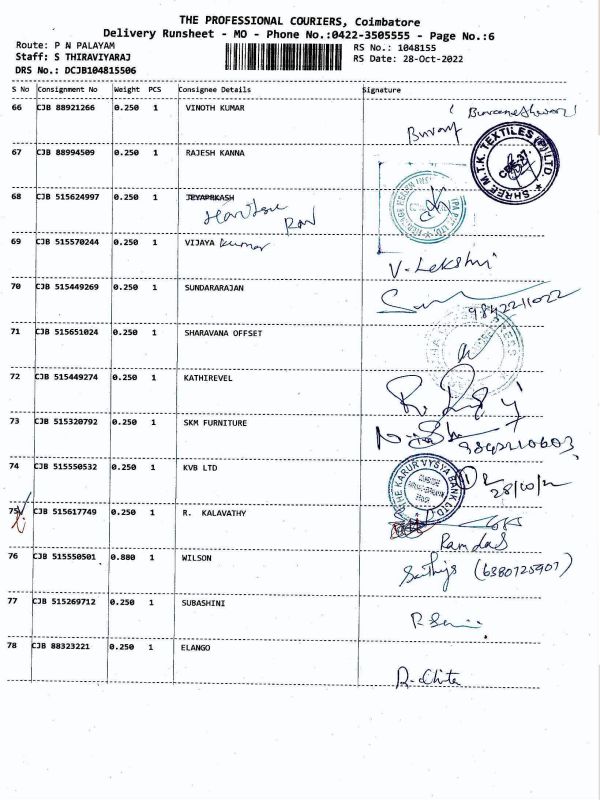 THE PROFESSIONAL COURIERS, Coimbatore
Delivery Runsheet - MO - Phone No.:0422-3505555 - Page No.:6
Route: P N PALAYAM RS No.: 1048155
Staff: S THIRAVIYARAJ RS Date: 28-Oct-2022
DRS No.: DCJB104815506
S No Consignment No Weight PCS Consignee Details Signature
66 CJB 88921266 0.250 1 VINOTH KUMAR
67 CJB 88994509 0.250 1 RAJESH KANNA
SHREE M.T.K. TEXTILES (P) LTD.
68 CJB 515624997 0.250 1 JEYAPRKASH
69 CJB 515570244 0.250 1 VIJAYA kumar
V. Lekshmi
70 CJB 515449269 0.250 1 SUNDARARAJAN
9842211022
71 CJB 515651024 0.250 1 SHARAVANA OFFSET
72 CJB 515449274 0.250 1 KATHIREVEL
73 CJB 515320792 0.250 1 SKM FURNITURE
9842210603
74 CJB 515550532 0.250 1 KVB LTD
THE KARUR VYSYA BANK LTD.
28/10/22
75 CJB 515617749 0.250 1 R. KALAVATHY
Ramdas
76 CJB 515550501 0.880 1 WILSON
(6380725907)
77 CJB 515269712 0.250 1 SUBASHINI
78 CJB 88323221 0.250 1 ELANGO
R-chitra